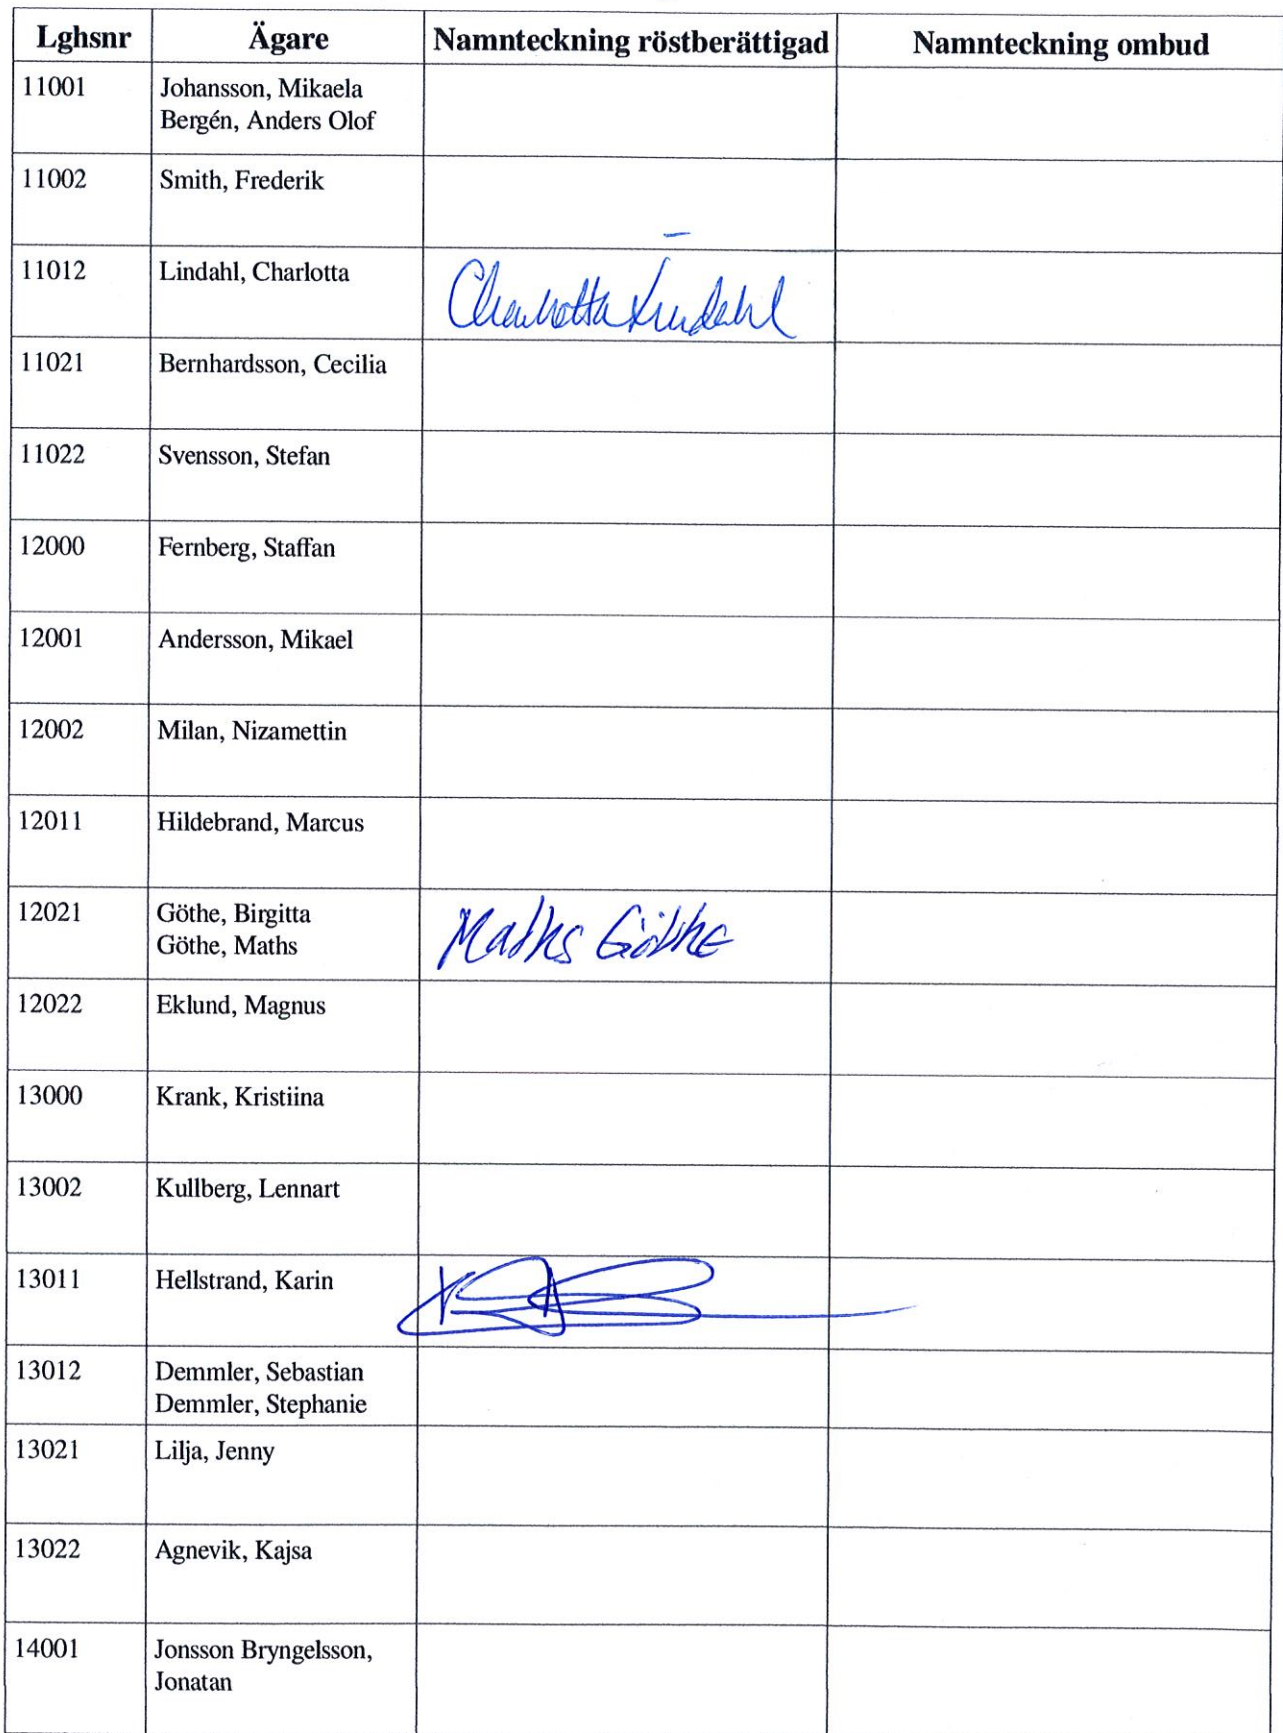 Lghsnr Ägare Namnteckning röstberättigad Namnteckning ombud
11001 Johansson, Mikaela
Bergén, Anders Olof
11002 Smith, Frederik
11012 Lindahl, Charlotta Charlotta Lindahl
11021 Bernhardsson, Cecilia
11022 Svensson, Stefan
12000 Fernberg, Staffan
12001 Andersson, Mikael
12002 Milan, Nizamettin
12011 Hildebrand, Marcus
12021 Göthe, Birgitta
Göthe, Maths Maths Göthe
12022 Eklund, Magnus
13000 Krank, Kristiina
13002 Kullberg, Lennart
13011 Hellstrand, Karin
13012 Demmler, Sebastian
Demmler, Stephanie
13021 Lilja, Jenny
13022 Agnevik, Kajsa
14001 Jonsson Bryngelsson,
Jonatan